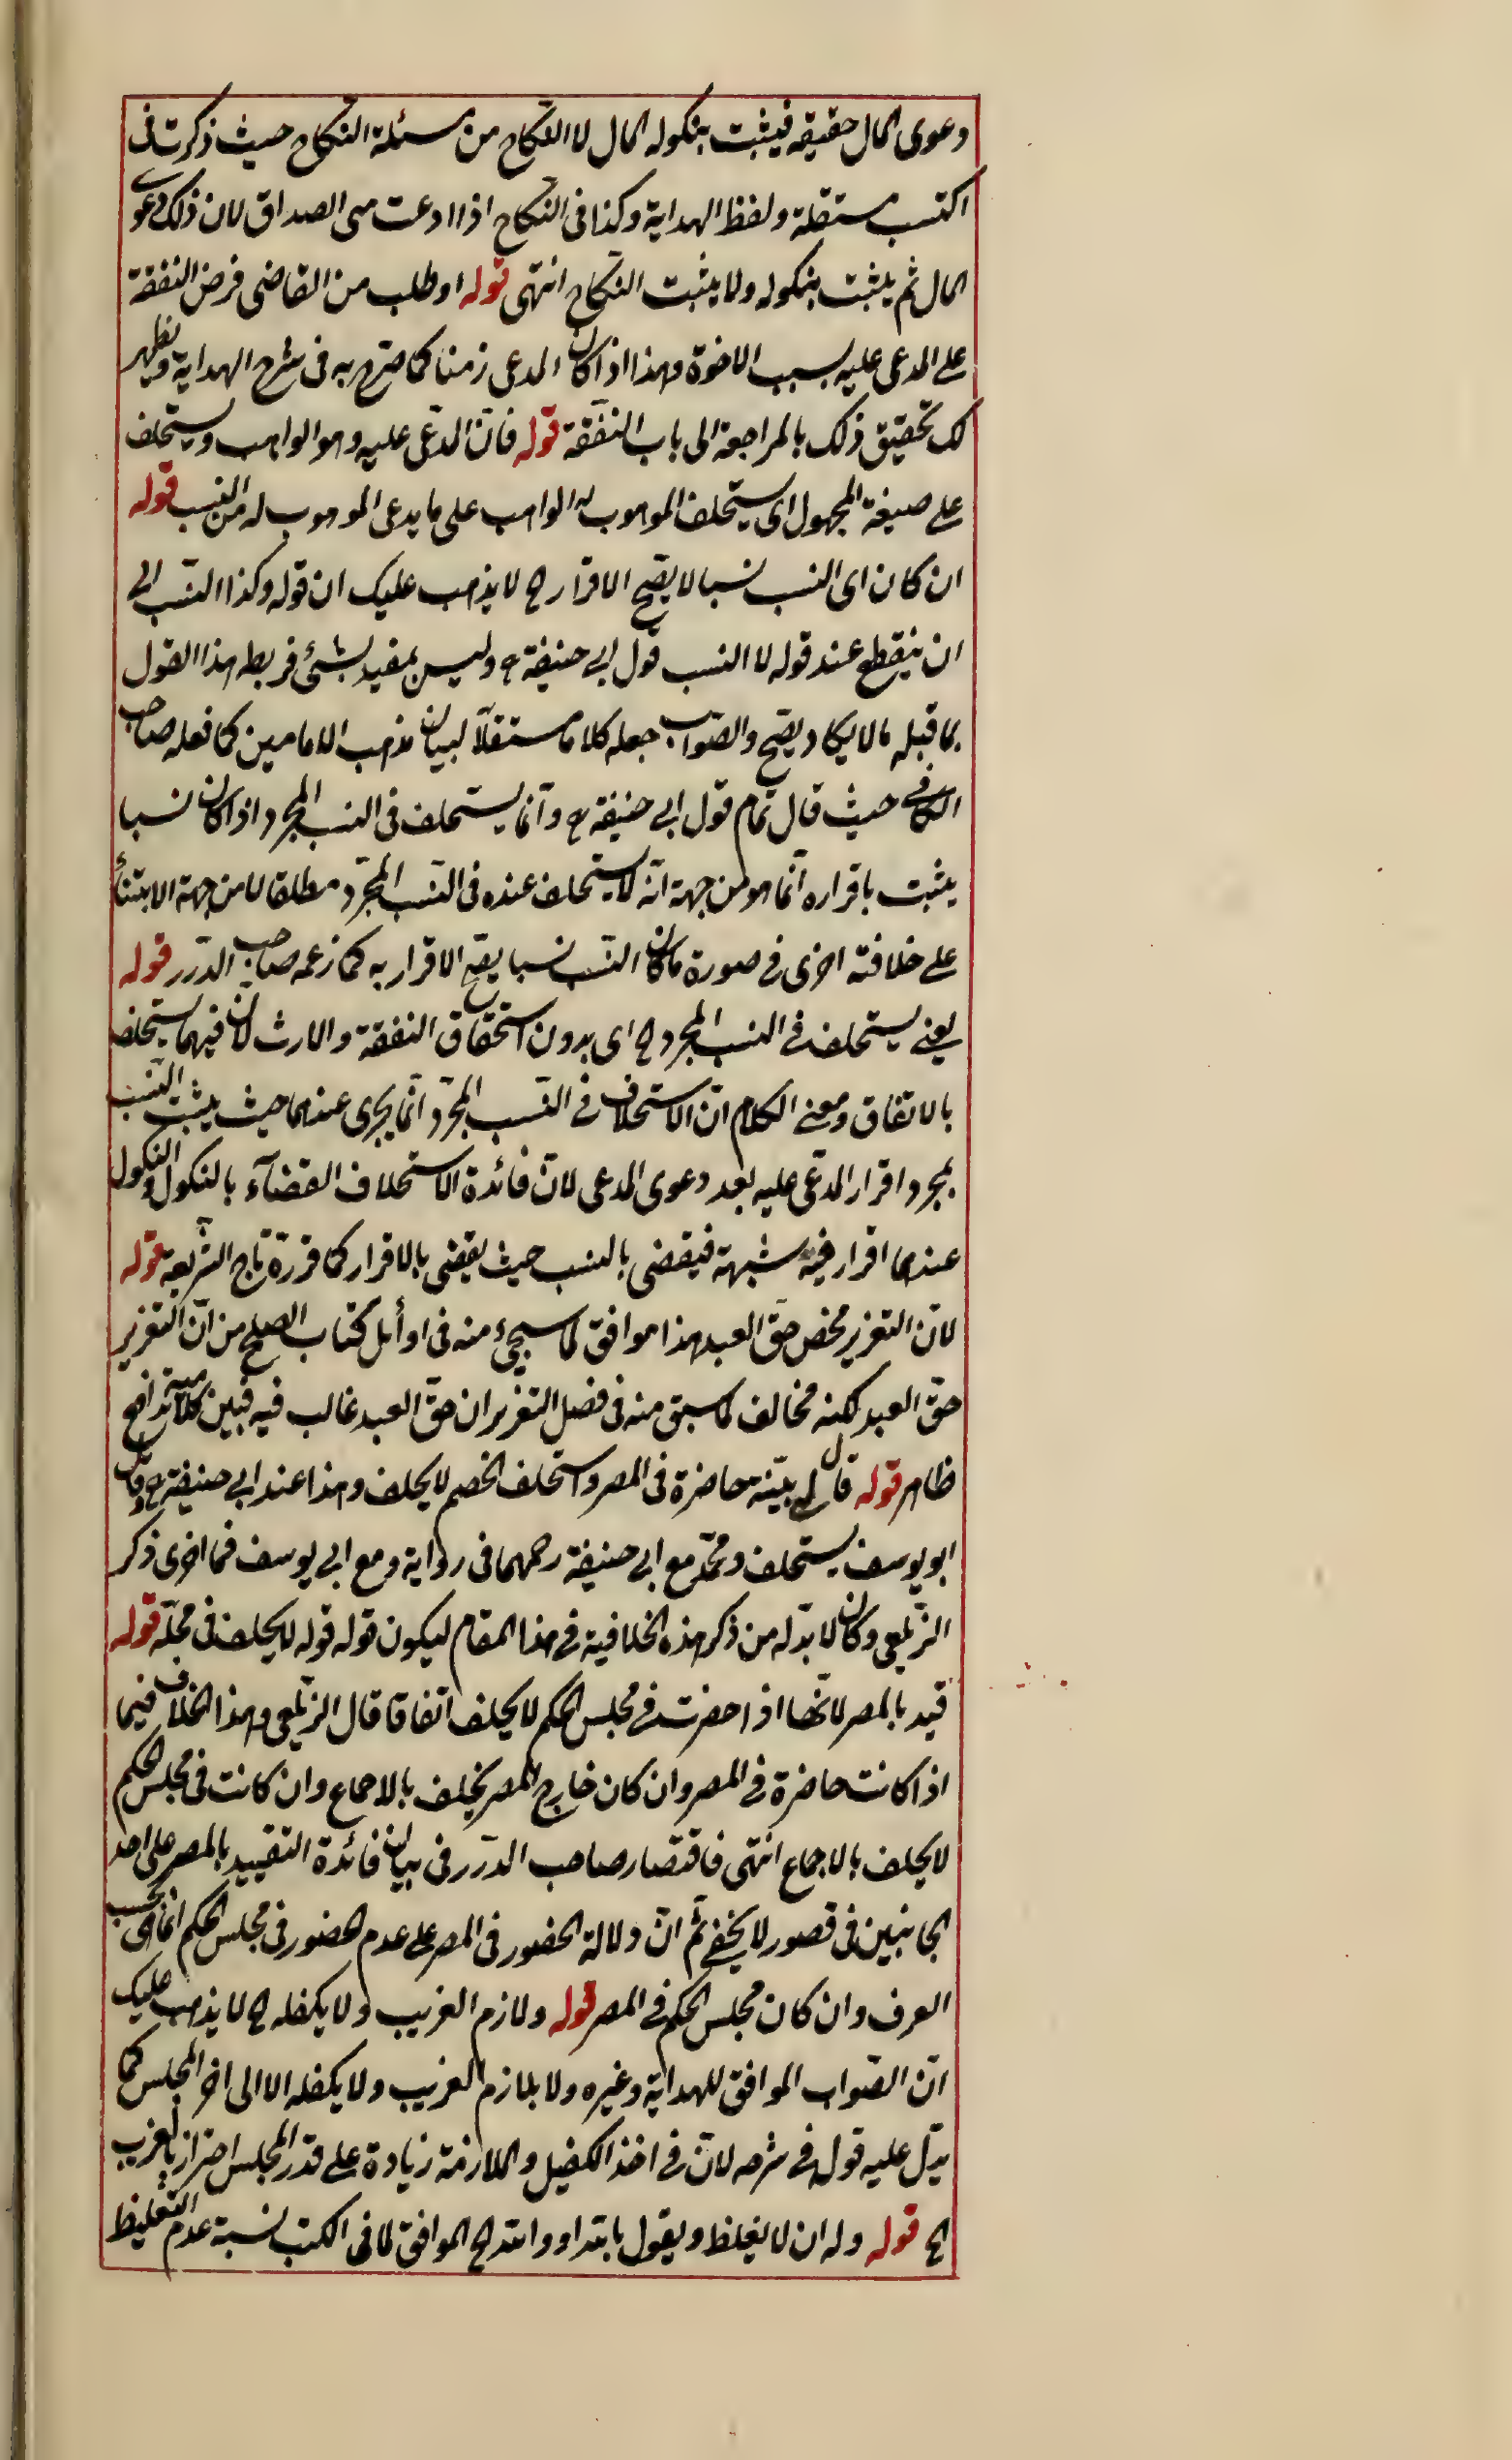 دعوى المال حقيقه فيثبت بنكوله المال لا النكاح من مسئلة النكاح حيث ذكرت فى
الكتب مستقلة ولفظ الهداية وكذا فى النكاح اذا ادعت هى الصداق لان ذلك دعوى
المال ثم يثبت بنكوله ولا يثبت النكاح انتهى قوله او طلب من القاضى فرض النفقة
على المدعى عليه بسبب الاخوة وهذا اذا كان المدعى زمنا كما صرح به فى شرح الهداية ويظهر
لك تحقيق ذلك بالمراجعة الى باب النفقة قوله فان المدّعى عليه وهو الواهب ويستحلف
على صيغة المجهول اى يستحلف الموهوب له الواهب على ما يدعى الموهوب له من النسب قوله
ان كان اى النسب نسبا لا يصّح الاقرار الخ لا يذهب عليك ان قوله وكذا النسب الى
ان ينقطع عند قوله لا النسب قول ابى حنيفة رح وليس بمفيد بشئ فربط هذا القول
بما قبله مما لا يكاد يصّح والصّواب جعله كلاما مستقلّا لبيان مذهب الامامين كما فعله صاحب
الكافى حيث قال تمام قول ابى حنيفة رح وانّما يستحلف فى النسب المجرد اذا كان نسبا
يثبت باقراره انّما هو من جهة انّه لا يستحلف عنده فى النّسب المجرّد مطلقا لا من جهة الابتناء
على خلافية اخرى فى صورة ما كان النّسب نسبا يصّح الاقرار به كما زعمه صاحب الدّرر قوله
يعنى يستحلف فى النسب المجرد الخ اى بدون استحقاق النفقة والارث لان فيهما يستحلف
بالاتفاق ومعنى الكلام انّ الاستحلاف فى النّسب المجرّد انّما يجرى عندهما حيث يثبت النّسب
بمجرد اقرار المدّعى عليه بعد دعوى المدعى لانّ فائدة الاستحلاف القضآء بالنكول والنكول
عندهما اقرار فيه شبهة فيقضى بالنسب حيث يقضى بالاقرار كما قرّره تاج الشّريعه قوله
لانّ التعزير محض حقّ العبد هذا موافق لما سيجئ منه فى اوائل كتاب الصلح من انّ التعزير
حقّ العبد لكنه مخالف لما سبق منه فى فصل التعزير ان حقّ العبد غالب فيه فبين كلاميه تدافع
ظاهر قوله قال لى بيّنة حاضرة فى المصر واستحلف الخصم لا يحلف وهذا عند ابى حنيفة رح وقال
ابو يوسف يستحلف ومحمّد مع ابى حنيفة رحمهما فى رواية ومع ابى يوسف فى اخرى ذكر
الزّيلعى وكان لا بدّ له من ذكر هذه الخلافية فى هذا المقام ليكون قوله قوله لا يحلف فى محلّه قوله
قيد بالمصر لانّها اذا حضرت فى مجلس الحكم لا يحلف اتفاقا قال الزيلعى وهذا الخلاف فيما
اذا كانت حاضرة فى المصر وان كان خارج المصر يحلف بالاجماع وان كانت فى مجلس الحكم
لا يحلف بالاجماع انتهى فاقتصار صاحب الدّرر فى بيان فائدة التقييد بالمصر على احد
الجانبين فى قصور لا يخفى ثم انّ دلالة الحضور فى المصر على عدم الحضور فى مجلس الحكم انما هى بحسب
العرف وان كان مجلس الحكم فى المصر قوله ولازم الغريب ولا يكفله الخ لا يذهب عليك
انّ الصّواب الموافق للهداية وغيره ولا يلازم الغريب ولا يكفله الا الى اخر المجلس كما
يدّل عليه قوله فى شرحه لانّ فى اخذ الكفيل والملازمة زيادة على قدر المجلس اضرارا بالغريب
الخ قوله وله ان لا يغلظ ويقول بالله او والله الخ الموافق لما فى الكتب نسبة عدم التّغليظ